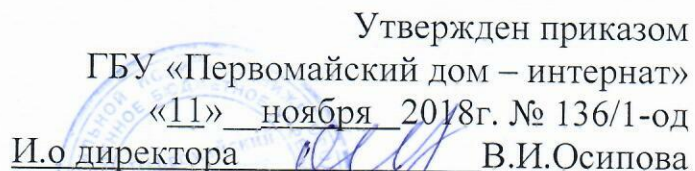 Утвержден приказом
ГБУ «Первомайский дом – интернат»
«11» ноября 2018г. № 136/1-од
И.о директора В.И.Осипова